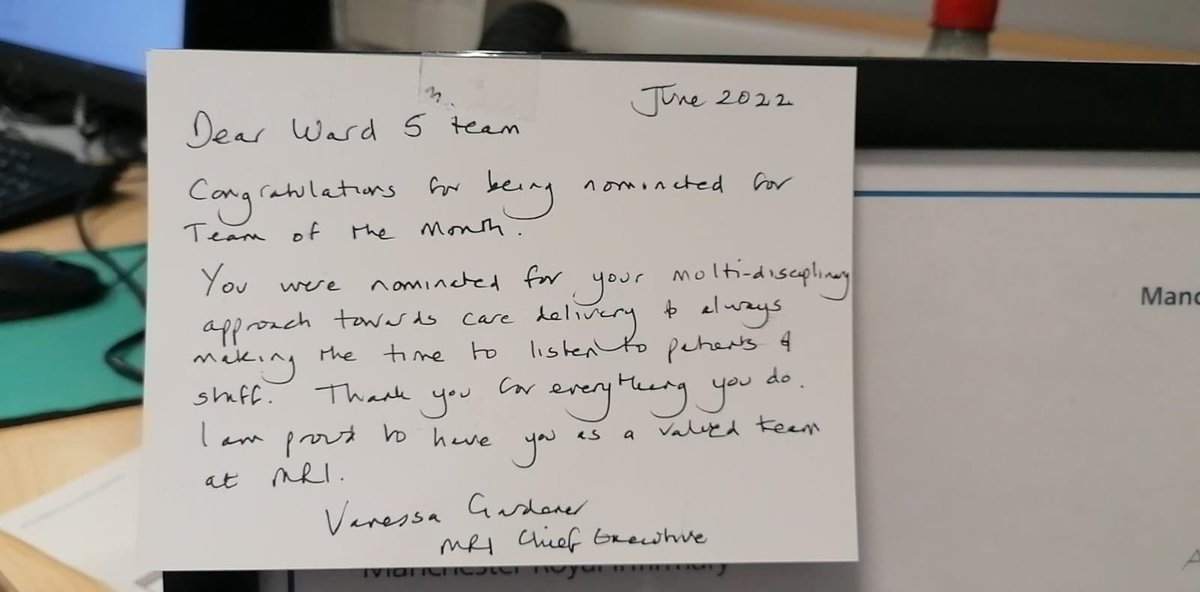 June 2022
Dear Ward 5 team
Congratulations for being nominated for
Team of the Month.
You were nominated for your multi-disciplinary
approach towards care delivery & always
making the time to listen to patients &
staff. Thank you for everything you do.
I am proud to have you as a valued team
at MRI.
Vanessa Gardener
MRI Chief Executive
Manchester Royal Infirmary
Manc